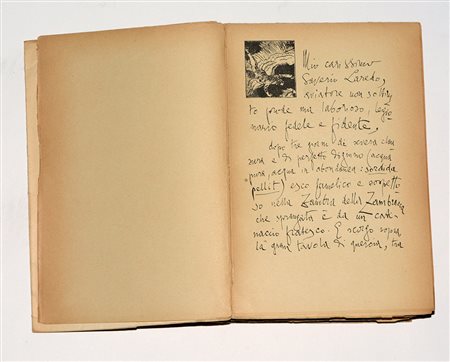 Mio carissimo
Saverio Laredo,
aviatore non soltan
to prode ma laborioso, legio
nario fedele e fidente,
dopo tre giorni di severa clau
sura e di perfetto digiuno (acqua
pura, acqua in abondanza: sordida
pellit) esco famelico e sospetto
so nella Zambra della Zambracca
che sprangata è da un cate
naccio fratesco. E scorgo sopra
la gran tavola di quercia, tra